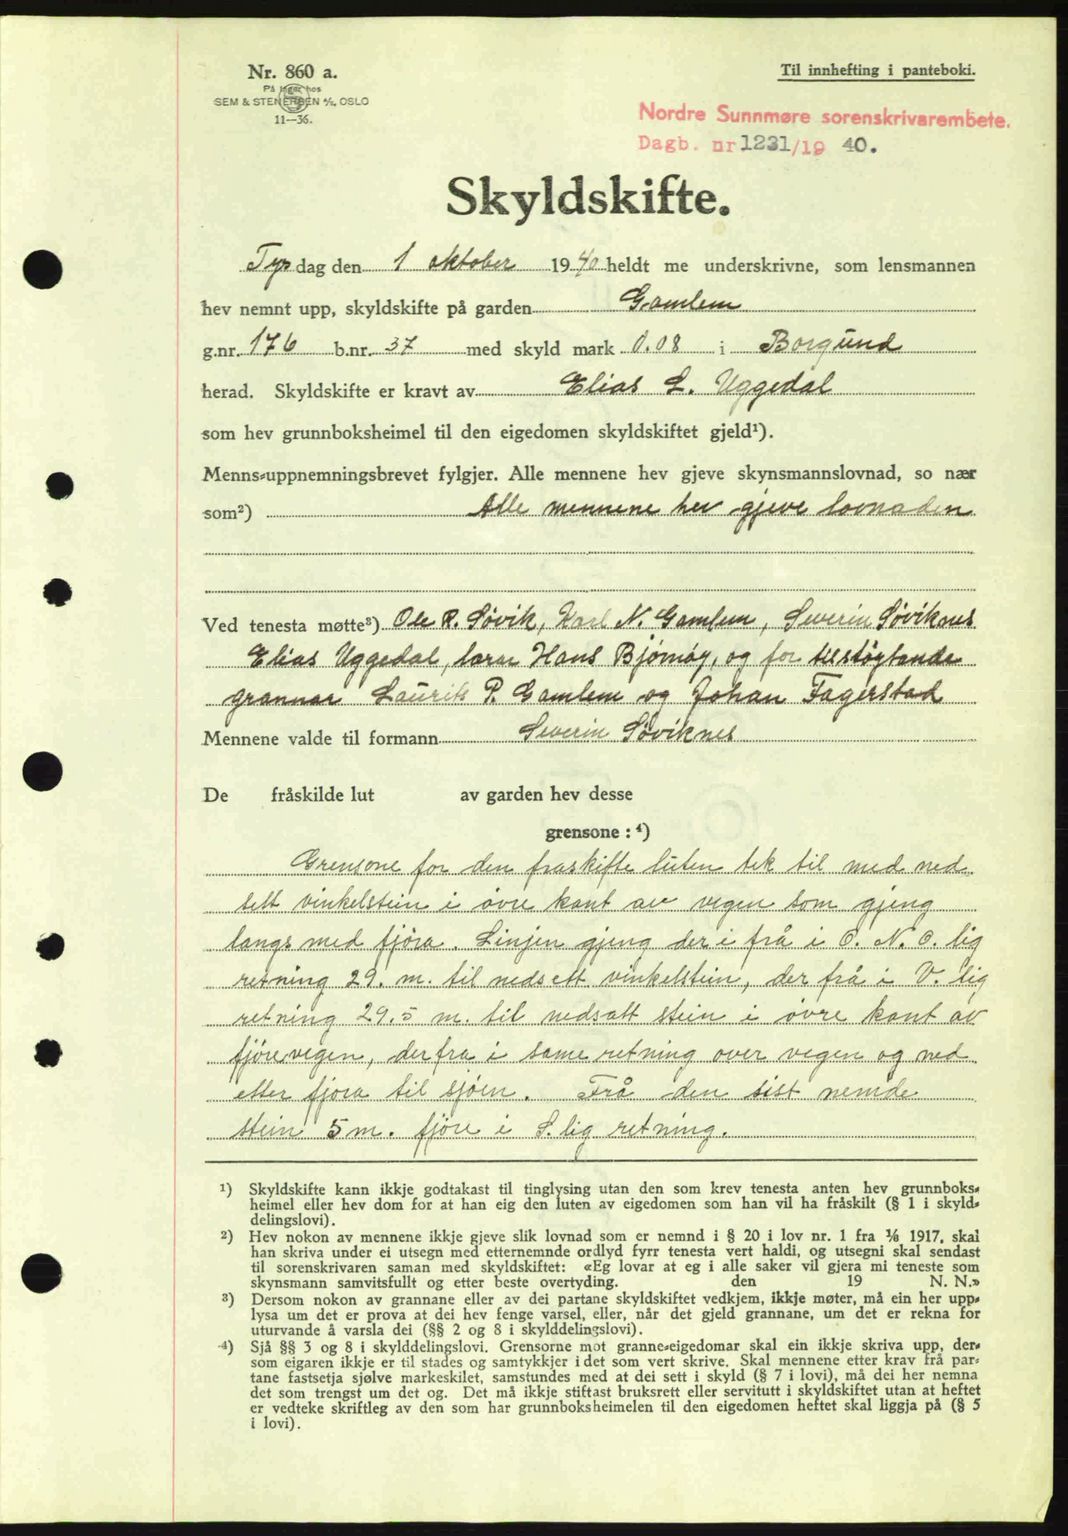 Nr. 860 a.
På lager hos
SEM & STENERSEN A/S, OSLO
11—36.
Til innhefting i panteboki.
Nordre Sunnmøre sorenskrivarembete.
Dagb. nr 1231/19 40.
Skyldskifte.
Tys dag den 1 oktober 1940 heldt me underskrivne, som lensmannen
hev nemnt upp, skyldskifte på garden Gamlem
g.nr. 176 b.nr. 37 med skyld mark 0.08 i Borgund
herad. Skyldskifte er kravt av Elias L. Uggedal
som hev grunnboksheimel til den eigedomen skyldskiftet gjeld¹).
Menns-uppnemningsbrevet fylgjer. Alle mennene hev gjeve skynsmannslovnad, so nær
som²) Alle mennene hev gjeve lovnaden
Ved tenesta møtte³) Ole R. Søvik, Karl N. Gamlem, Severin Søviknes
Elias Uggedal, lærar Hans Bjørnøy, og for tilstøytande
grannar Laurits P. Gamlem og Johan Fagerstad
Mennene valde til formann Severin Søviknes
De fråskilde lut av garden hev desse
grensone : ⁴)
Grensone for den fraskifte luten tek til med ned
sett vinkelstein i øvre kant av vegen som gjeng
langs med fjöra. Linjen gjeng der i frå i O. N. O. lig
retning 29. m. til nedsett vinkelstein, der frå i V. lig
retning 29.5 m. til nedsatt stein i øvre kant av
fjørevegen, der fra i same retning over vegen og ned
etter fjøra til sjøen. Frå den sist nemde
stein 5 m. fjöre i S. lig retning.
¹) Skyldskifte kann ikkje godtakast til tinglysing utan den som krev tenesta anten hev grunnboks-
heimel eller hev dom for at han eig den luten av eigedomen som han vil ha fråskilt (§ 1 i skyld-
delingslovi).
²) Hev nokon av mennene ikkje gjeve slik lovnad som er nemnd i § 20 i lov nr. 1 fra 1/6 1917, skal
han skriva under ei utsegn med etternemnde ordlyd fyrr tenesta vert haldi, og utsegni skal sendast
til sorenskrivaren saman med skyldskiftet: «Eg lovar at eg i alle saker vil gjera mi teneste som
skynsmann samvitsfullt og etter beste overtyding. den 19 N. N.»
³) Dersom nokon av grannane eller av dei partane skyldskiftet vedkjem, ikkje møter, må ein her upp-
lysa um det er prova at dei hev fenge varsel, eller, når det gjeld grannane, um det er rekna for
uturvande å varsla dei (§§ 2 og 8 i skylddelingslovi).
⁴) Sjå §§ 3 og 8 i skylddelingslovi. Grensorne mot granne-eigedomar skal ein ikkje skriva upp, der-
som eigaren ikkje er til stades og samtykkjer i det som vert skrive. Skal mennene etter krav frå par-
tane fastsetja sjølve markeskilet, samstundes med at dei sett i skyld (§ 7 i lovi), må dei her nemna
det som trengst um det og. Det må ikkje stiftast bruksrett eller servitutt i skyldskiftet utan at heftet
er vedteke skriftleg av den som har grunnboksheimelen til den eigedomen heftet skal liggja på (§ 5
i lovi).